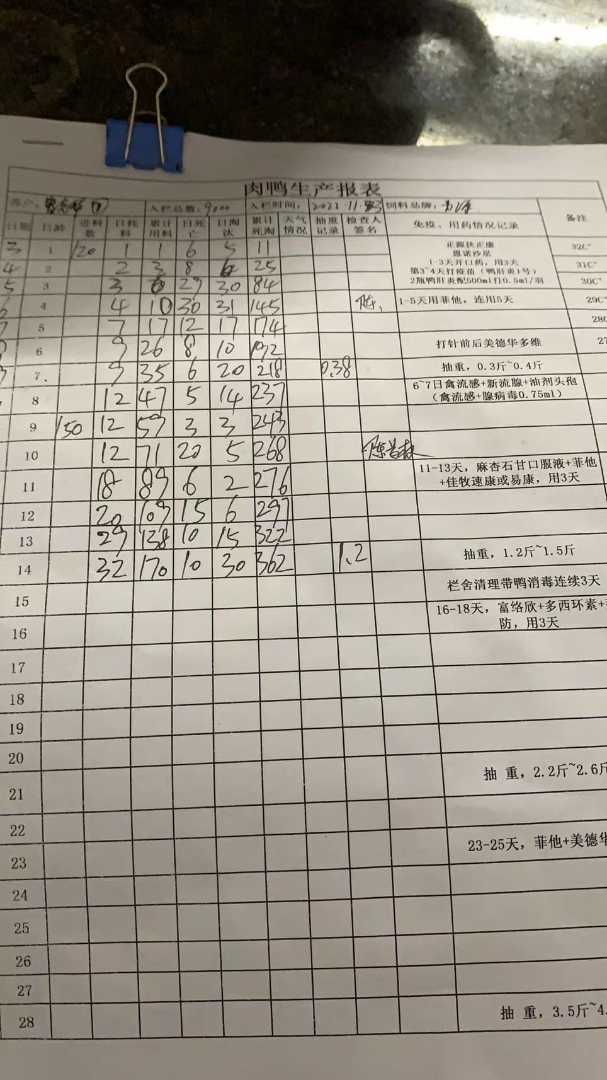 肉鸭生产报表
客户: 入栏总数: 9000 入栏时间: 2021.11. 饲料品牌:
日期 日龄 进料数 日耗料 累计用料 日死亡 日淘汰 累计死淘 天气情况 抽重记录 检查人签名 免疫、用药情况记录 备注
3 1 120 1 1 6 5 11 正源扶正康 32C°
恩诺沙星
4 2 2 3 8 6 25 1-3天开口药，用3天 31C°
第3~4天打疫苗（鸭肝炎1号）
5 3 3 6 29 30 84 2瓶鸭肝炎配500ml打0.5ml/羽 30C°
4 4 10 30 31 145 1-5天用菲他，连用5天 29C°
5 7 17 12 17 174 28C
6 9 26 8 10 192 打针前后美德华多维 27
7. 9 35 6 20 218 0.38 抽重，0.3斤~0.4斤
8 12 47 5 14 237 6~7日禽流感+新流腺+油剂头孢
（禽流感+腺病毒0.75ml）
9 150 12 59 3 3 243
10 12 71 20 5 268
11 18 89 6 2 276 11-13天，麻杏石甘口服液+菲他
+佳牧速康或易康，用3天
12 20 109 15 6 297
13 29 138 10 15 322
14 32 170 10 30 362 1.2 抽重，1.2斤~1.5斤
15 栏舍清理带鸭消毒连续3天
16 16-18天，富络欣+多西环素+
防，用3天
17
18
19
20
21 抽 重，2.2斤~2.6斤
22
23 23-25天，菲他+美德华
24
25
26
27
28 抽 重，3.5斤~4.